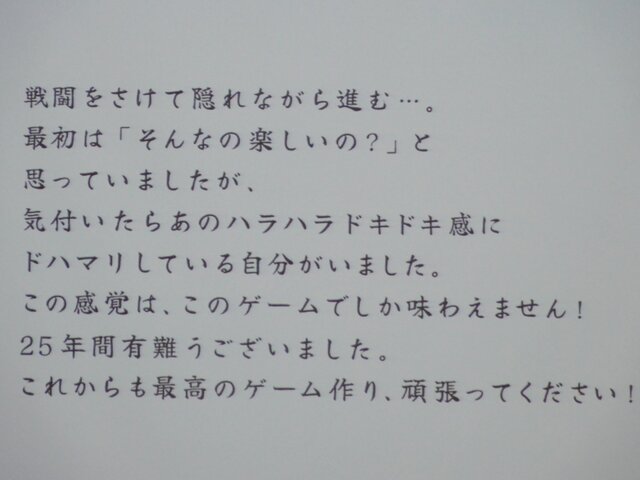 戦闘をさけて隠れながら進む…。
最初は「そんなの楽しいの?」と
思っていましたが、
気付いたらあのハラハラドキドキ感に
ドハマりしている自分がいました。
この感覚は、このゲームでしか味わえません!
25年間有難うございました。
これからも最高のゲーム作り、頑張ってください!